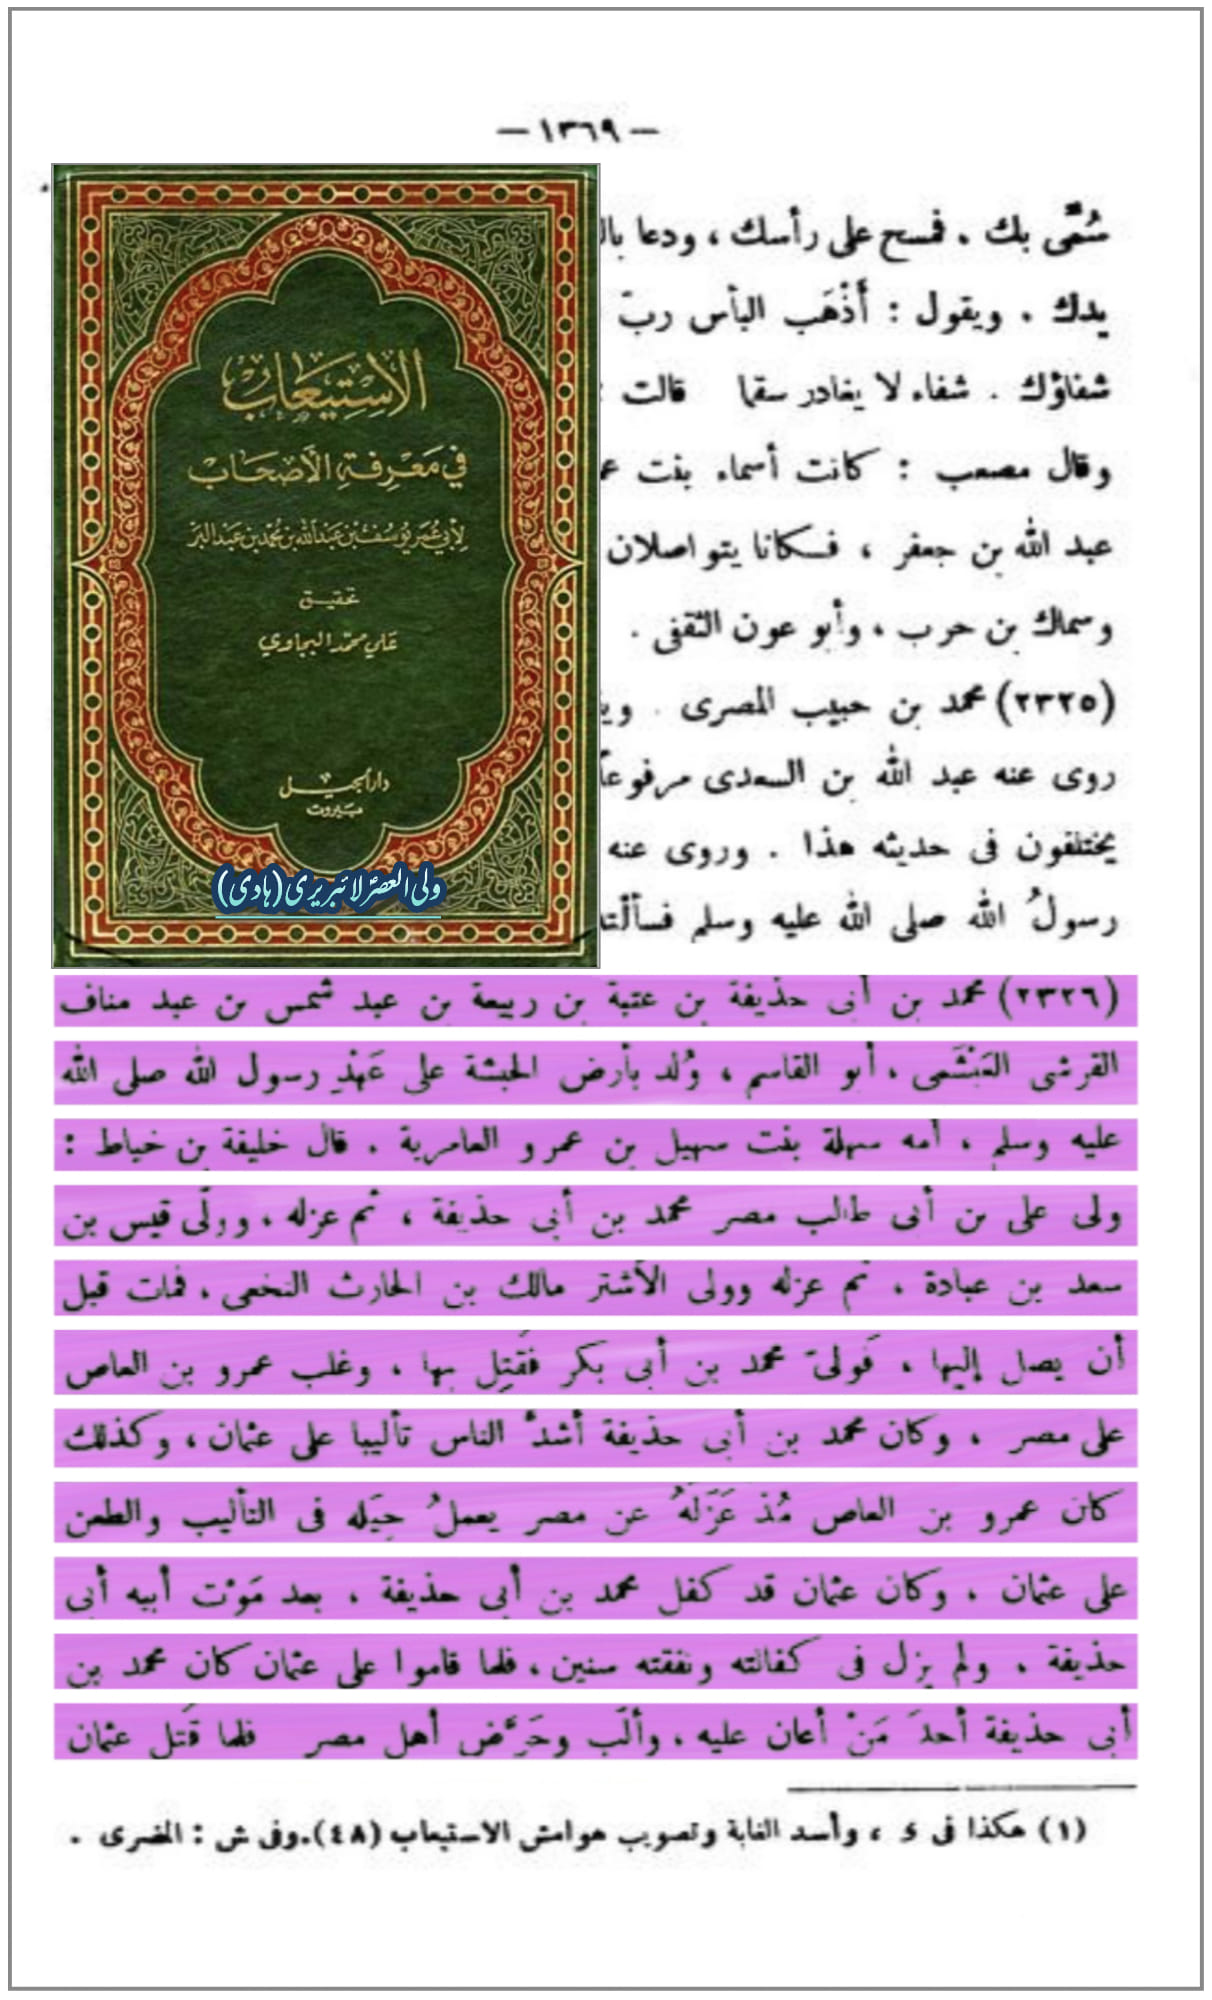 — ١٣٦٩ —
سُمِّى بك . فمسح على رأسك ، ودعا
يدك . ويقول : أَذْهَب البأس ربّ
شفاؤك . شفاء لا يغادر سقما قالت :
وقال مصعب : كانت أسماء بنت
عبد الله بن جعفر ، فكانا يتواصلان
وسماك بن حرب ، وأبو عون الثقفى .
(٢٣٢٥) محمد بن حبيب المصرى .
روى عنه عبد الله بن السعدى مرفوعًا
يختلفون فى حديثه هذا . وروى عنه
رسولُ الله صلى الله عليه وسلم
الاستيعاب
في معرفة الأصحاب
لأبي عمر يوسف بن عبد الله بن محمد بن عبد البر
تحقيق
علي محمد البجاوي
دار الجيل
بيروت
ولی العصرؑ لائبریری (ہادی)
(٢٣٢٦) محمد بن أبى حذيفة بن عتبة بن ربيعة بن عبد شمس بن عبد مناف
القرشى العَبْشَمى ، أبو القاسم ، وُلد بأرض الحبشة على عَهْدِ رسول الله صلى الله
عليه وسلم ، أمه سهلة بنت سهيل بن عمرو العامرية . قال خليفة بن خياط :
ولى على بن أبى طالب مصر محمد بن أبى حذيفة ، ثم عزله ، وولّى قيس بن
سعد بن عبادة ، ثم عزله وولى الأشتر مالك بن الحارث النخعى ، فمات قبل
أن يصل إليها ، فَولىّ محمد بن أبى بكر فقُتِل بها ، وغلب عمرو بن العاص
على مصر ، وكان محمد بن أبى حذيفة أشدَّ الناس تأليبا على عثمان ، وكذلك
كان عمرو بن العاص مُذ عَزَلَهُ عن مصر يعملُ حِيَله فى التأليب والطعن
على عثمان ، وكان عثمان قد كفل محمد بن أبى حذيفة ، بعد مَوْت أبيه أبى
حذيفة ، ولم يزل فى كفالته ونفقته سنين ، فلما قاموا على عثمان كان محمد بن
أبى حذيفة أحدَ مَنْ أعان عليه ، وألّب وحَرَّض أهل مصر فلما قُتل عثمان
(١) هكذا فى ى ، وأسد الغابة وتصويب هوامش الاستيعاب (٤٨).وفى ش : المضرى .